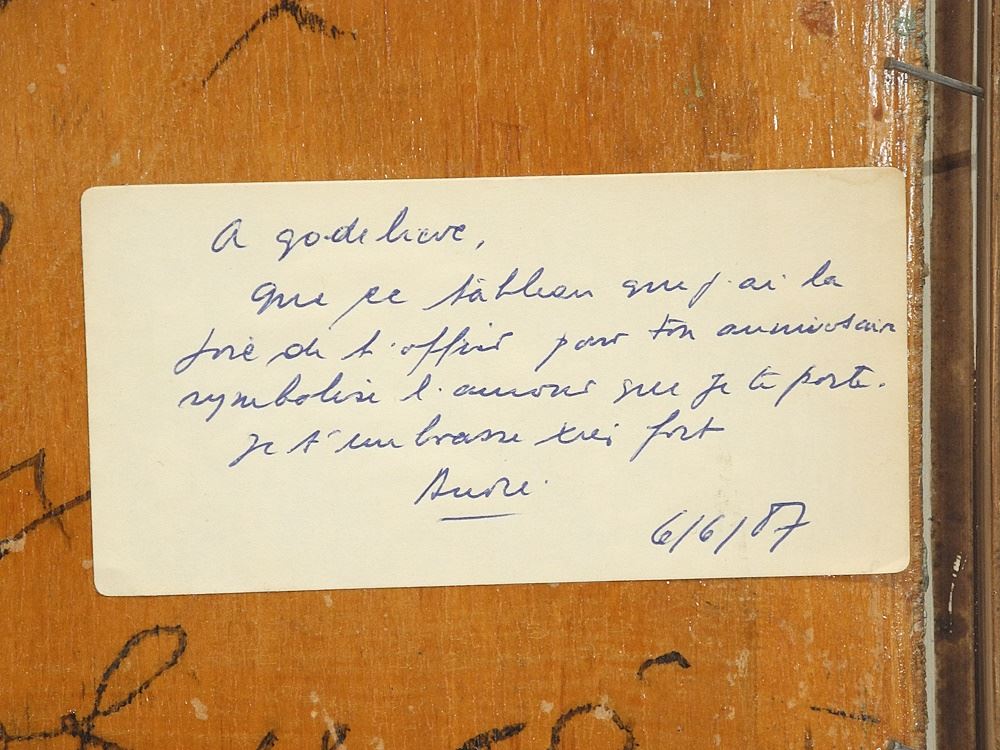 A godelieve,
que ce tableau que j'ai la
joie de t'offrir pour ton anniversaire
symbolise l'amour que je te porte.
je t'embrasse très fort
André
6/6/87